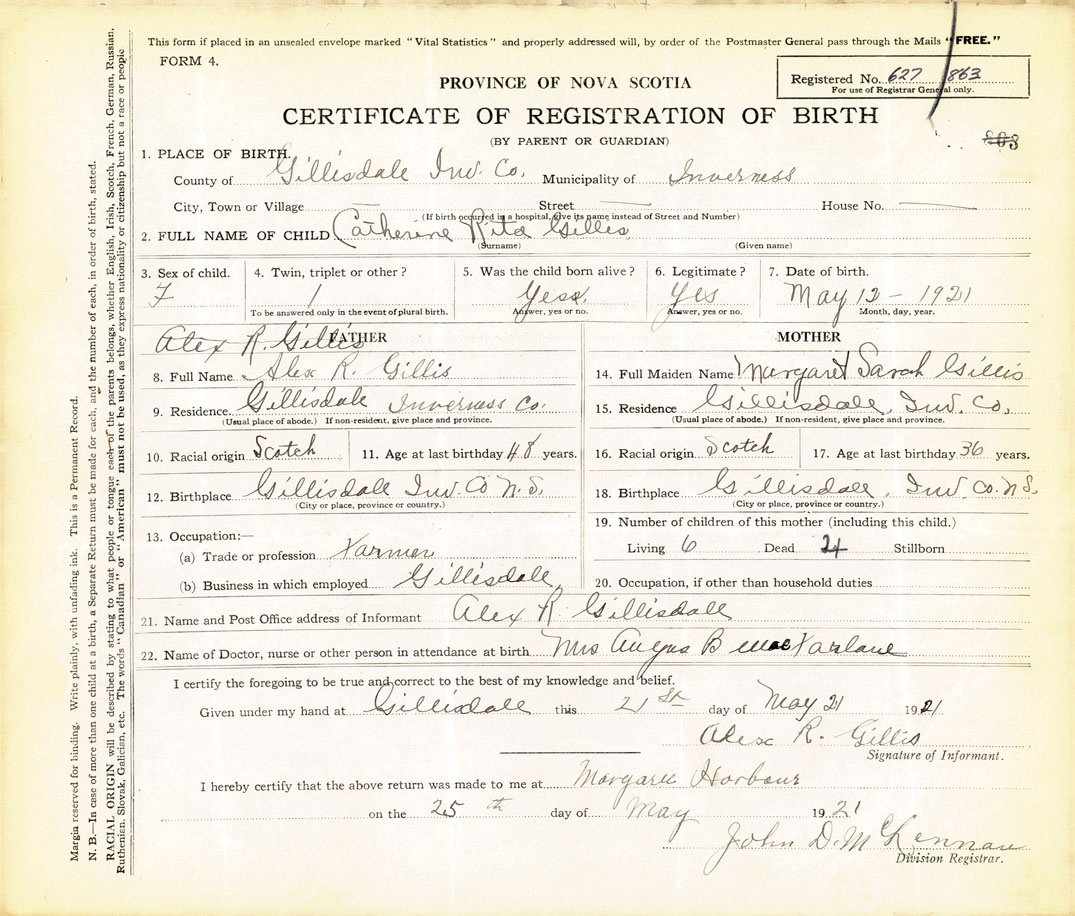 This form if placed in an unsealed envelope marked "Vital Statistics" and properly addressed will, by order of the Postmaster General pass through the Mails "FREE."
FORM 4.
Registered No. 627 863
For use of Registrar General only.
PROVINCE OF NOVA SCOTIA
CERTIFICATE OF REGISTRATION OF BIRTH
(BY PARENT OR GUARDIAN)
803
1. PLACE OF BIRTH.
County of Gillisdale Inv. Co. Municipality of Inverness
City, Town or Village — Street — House No. —
(If birth occurred in a hospital, give its name instead of Street and Number)
2. FULL NAME OF CHILD Catherine Rita Gillis
(Surname) (Given name)
3. Sex of child. 4. Twin, triplet or other? 5. Was the child born alive? 6. Legitimate? 7. Date of birth.
F / Yess. Yes May 12 - 1921
To be answered only in the event of plural birth. Answer, yes or no. Answer, yes or no. Month, day, year.
Alex R. Gillis FATHER
8. Full Name Alex R. Gillis
9. Residence Gillisdale Inverness Co.
(Usual place of abode.) If non-resident, give place and province.
10. Racial origin Scotch 11. Age at last birthday 48 years.
12. Birthplace Gillisdale Inv. Co N.S.
(City or place, province or country.)
13. Occupation:—
(a) Trade or profession Farmer
(b) Business in which employed Gillisdale
MOTHER
14. Full Maiden Name Margaret Sarah Gillis
15. Residence Gillisdale, Inv. Co.
(Usual place of abode.) If non-resident, give place and province.
16. Racial origin Scotch 17. Age at last birthday 36 years.
18. Birthplace Gillisdale, Inv. Co. N.S.
(City or place, province or country.)
19. Number of children of this mother (including this child.)
Living 6 Dead Stillborn
20. Occupation, if other than household duties
21. Name and Post Office address of Informant Alex R Gillisdale
22. Name of Doctor, nurse or other person in attendance at birth Mrs Angus B MacFarlane
I certify the foregoing to be true and correct to the best of my knowledge and belief.
Given under my hand at Gillisdale this 21st day of May 21 1921
Alex R. Gillis
Signature of Informant.
I hereby certify that the above return was made to me at Margaree Harbour
on the 25th day of May 1921
John D. McLennan
Division Registrar.
Margin reserved for binding. Write plainly, with unfading ink. This is a Permanent Record.
N. B.—In case of more than one child at a birth, a Separate Return must be made for each, and the number of each, in order of birth, stated.
RACIAL ORIGIN will be described by stating to what people or tongue each of the parents belongs, whether English, Irish, Scotch, French, German, Russian,
Ruthenian, Slovak, Galician, etc. The words "Canadian" or "American" must not be used, as they express nationality or citizenship but not a race or people